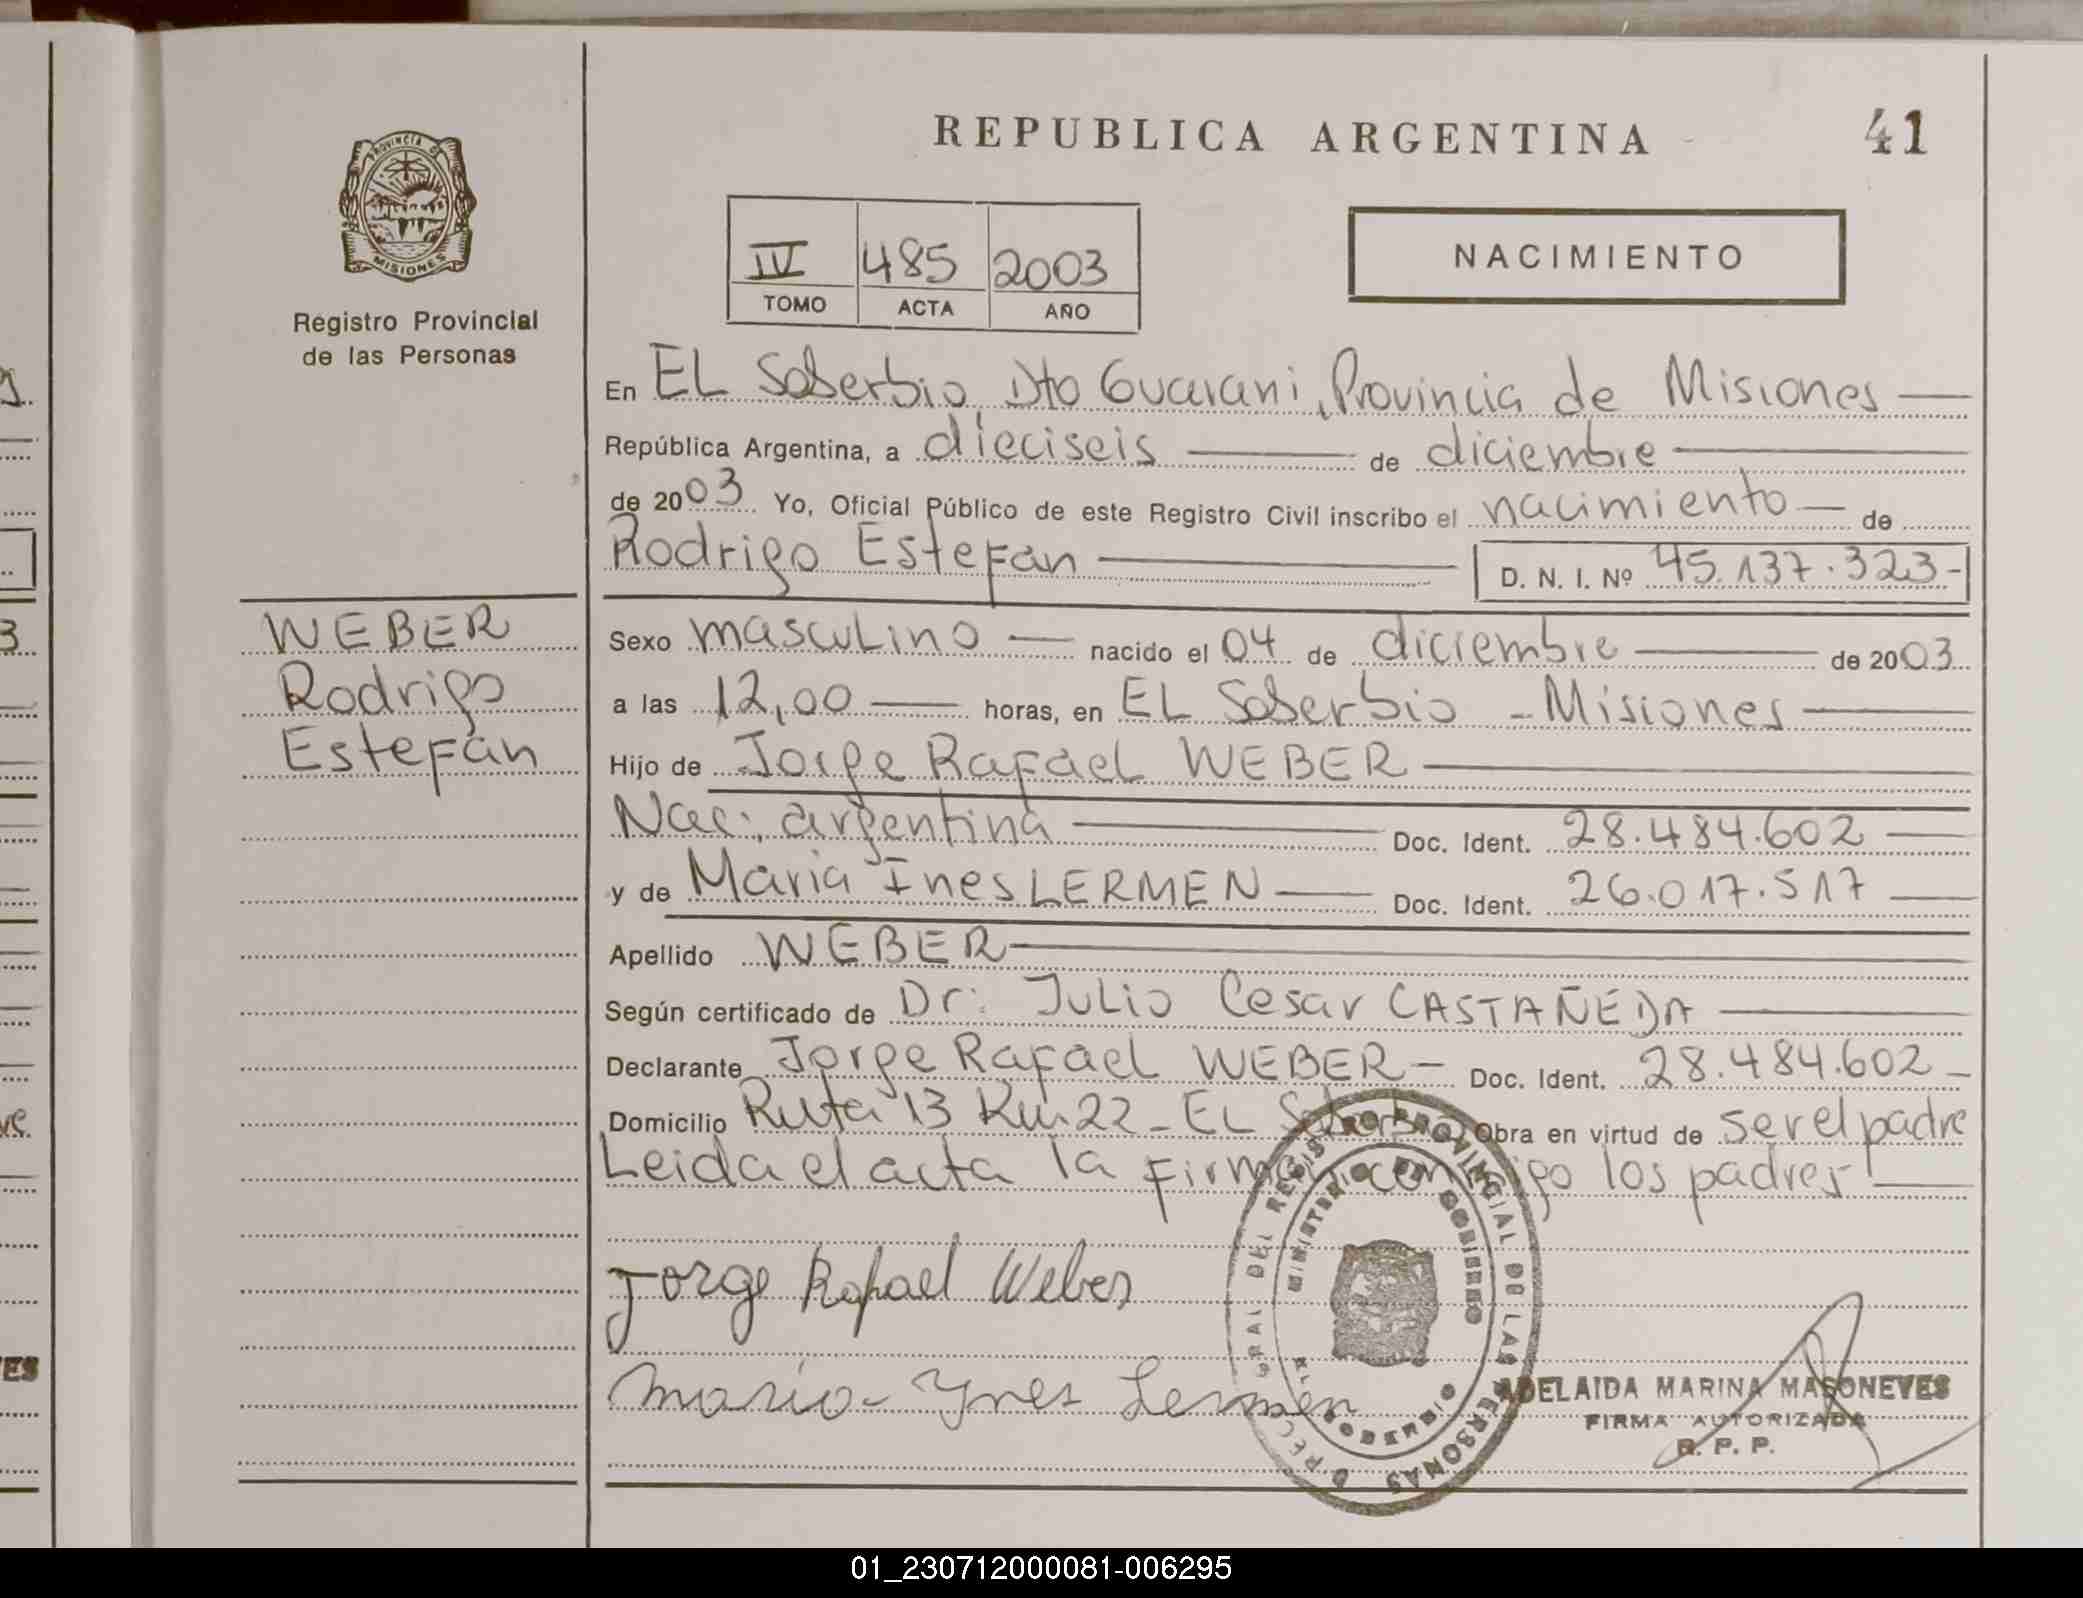 REPUBLICA ARGENTINA
41
PROVINCIA DE
MISIONES
Registro Provincial
de las Personas
IV 485 2003
TOMO ACTA AÑO
NACIMIENTO
En EL Soberbio, Dto Guarani, Provincia de Misiones
República Argentina, a dieciseis de diciembre
de 2003 Yo, Oficial Público de este Registro Civil inscribo el nacimiento de
Rodrigo Estefan D. N. I. Nº 45.137.323-
WEBER
Rodrigo
Estefan
Sexo masculino nacido el 04 de diciembre de 2003
a las 12,00 horas, en EL Soberbio - Misiones
Hijo de Jorge Rafael WEBER
Nac: argentina Doc. Ident. 28.484.602
y de Maria Ines LERMEN Doc. Ident. 26.017.517
Apellido WEBER
Según certificado de Dr: Julio Cesar CASTAÑEDA
Declarante Jorge Rafael WEBER - Doc. Ident. 28.484.602-
Domicilio Ruta 13 Km 22 - EL Soberbio Obra en virtud de ser el padre
Leida el acta la firman conmigo los padres
Jorge Rafael Weber
Maria Ynes Lermen
REGISTRO PROVINCIAL DE LAS PERSONAS
MINISTERIO DE GOBIERNO
EL SOBERBIO
ADELAIDA MARINA MASONEVES
FIRMA AUTORIZADA
R. P. P.
01_230712000081-006295